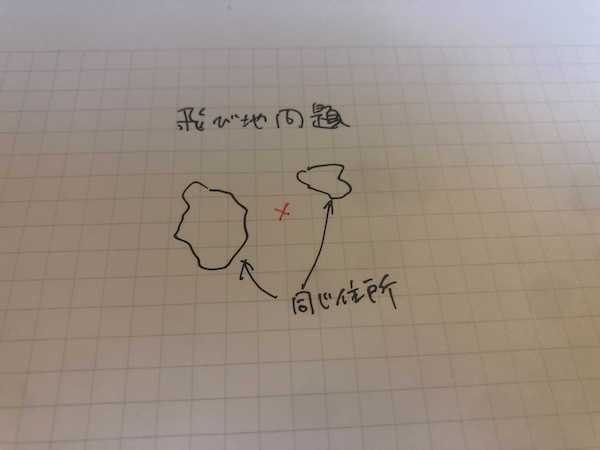 飛び地問題
同じ住所